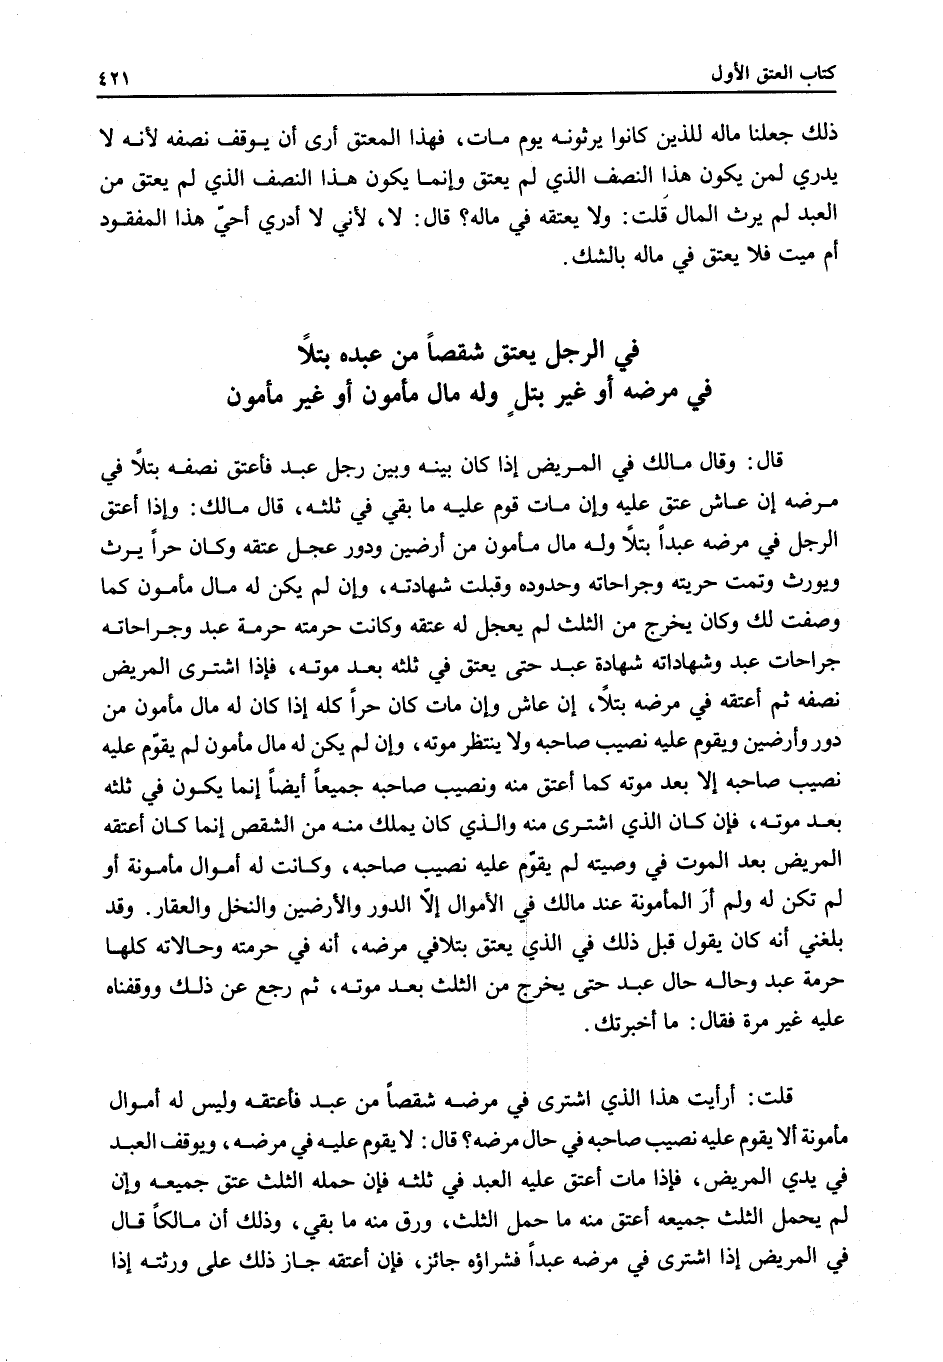 كتاب العتق الأول
٤٢١
ذلك جعلنا ماله للذين كانوا يرثونه يوم مات، فهذا المعتق أرى أن يوقف نصفه لأنه لا
يدري لمن يكون هذا النصف الذي لم يعتق وإنما يكون هذا النصف الذي لم يعتق من
العبد لم يرث المال قلت: ولا يعتقه في ماله؟ قال: لا، لأني لا أدري أحيّ هذا المفقود
أم ميت فلا يعتق في ماله بالشك.
في الرجل يعتق شقصاً من عبده بتلاً
في مرضه أو غير بتلٍ وله مال مأمون أو غير مأمون
قال: وقال مالك في المريض إذا كان بينه وبين رجل عبد فأعتق نصفه بتلاً في
مرضه إن عاش عتق عليه وإن مات قوم عليه ما بقي في ثلثه، قال مالك: وإذا أعتق
الرجل في مرضه عبداً بتلاً وله مال مأمون من أرضين ودور عجل عتقه وكان حراً يرث
ويورث وتمت حريته وجراحاته وحدوده وقبلت شهادته، وإن لم يكن له مال مأمون كما
وصفت لك وكان يخرج من الثلث لم يعجل له عتقه وكانت حرمته حرمة عبد وجراحاته
جراحات عبد وشهاداته شهادة عبد حتى يعتق في ثلثه بعد موته، فإذا اشترى المريض
نصفه ثم أعتقه في مرضه بتلاً، إن عاش وإن مات كان حراً كله إذا كان له مال مأمون من
دور وأرضين ويقوم عليه نصيب صاحبه ولا ينتظر موته، وإن لم يكن له مال مأمون لم يقوّم عليه
نصيب صاحبه إلا بعد موته كما أعتق منه ونصيب صاحبه جميعاً أيضاً إنما يكون في ثلثه
بعد موته، فإن كان الذي اشترى منه والذي كان يملك منه من الشقص إنما كان أعتقه
المريض بعد الموت في وصيته لم يقوّم عليه نصيب صاحبه، وكانت له أموال مأمونة أو
لم تكن له ولم أرَ المأمونة عند مالك في الأموال إلّا الدور والأرضين والنخل والعقار. وقد
بلغني أنه كان يقول قبل ذلك في الذي يعتق بتلافي مرضه، أنه في حرمته وحالاته كلها
حرمة عبد وحاله حال عبد حتى يخرج من الثلث بعد موته، ثم رجع عن ذلك ووقفناه
عليه غير مرة فقال: ما أخبرتك.
قلت: أرأيت هذا الذي اشترى في مرضه شقصاً من عبد فأعتقه وليس له أموال
مأمونة ألا يقوم عليه نصيب صاحبه في حال مرضه؟ قال: لا يقوم عليه في مرضه، ويوقف العبد
في يدي المريض، فإذا مات أعتق عليه العبد في ثلثه فإن حمله الثلث عتق جميعه وإن
لم يحمل الثلث جميعه أعتق منه ما حمل الثلث، ورق منه ما بقي، وذلك أن مالكاً قال
في المريض إذا اشترى في مرضه عبداً فشراؤه جائز، فإن أعتقه جاز ذلك على ورثته إذا